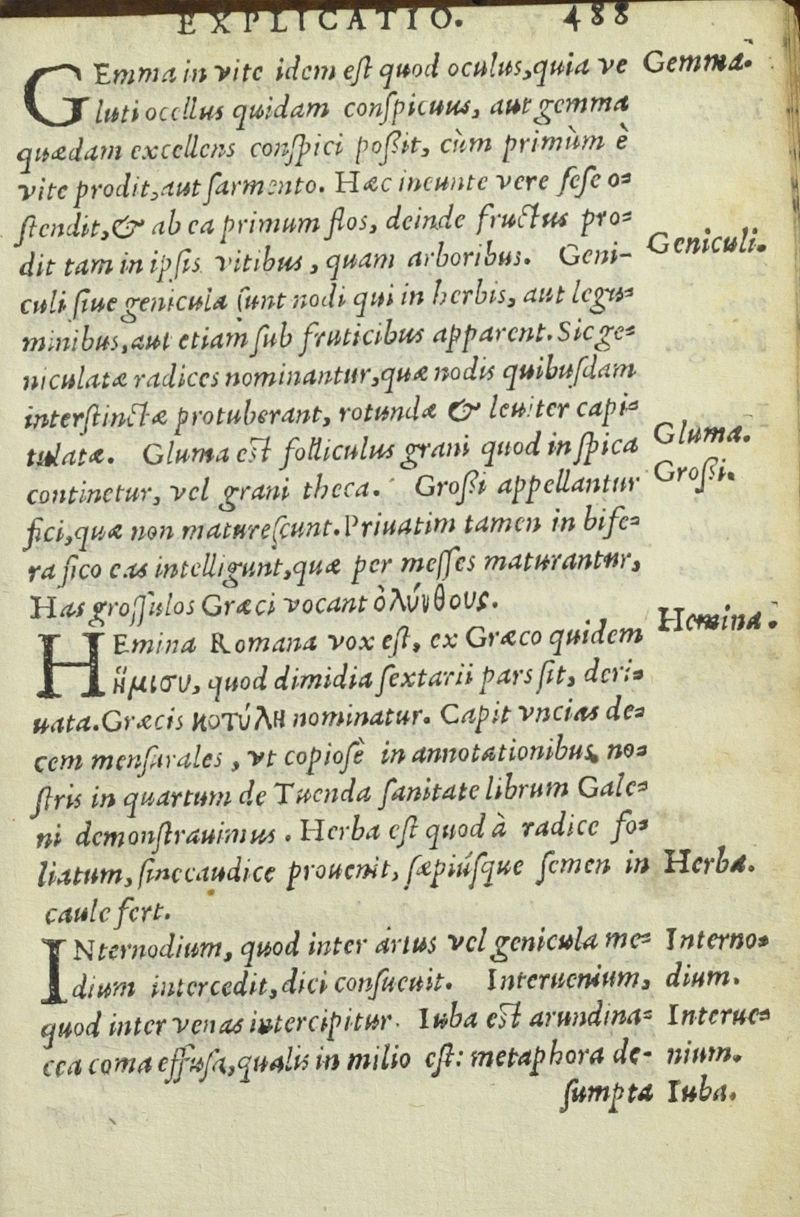 EXPLICATIO. 488
GEmma in vite idem eſt quod oculus, quia ve Gemma.
luti ocellus quidam conſpicuus, aut gemma
quædam excellens conſpici poſsit, cùm primùm è
vite prodit, aut ſarmento. Hæc ineunte vere ſeſe o=
ſtendit, & ab ea primum flos, deinde fructus pro=
dit tam in ipſis vitibus, quam arboribus. Geni- Geniculi.
culi ſiue genicula ſunt nodi qui in herbis, aut legu=
minibus, aut etiam ſub fruticibus apparent. Sic ge=
niculatæ radices nominantur, quæ nodis quibuſdam
interſtinctæ protuberant, rotundæ & leuiter capi=
tulatæ. Gluma eſt folliculus grani quod in ſpica Gluma.
continetur, vel grani theca. Groſsi appellantur Groſsi.
fici, quæ non matureſcunt. Priuatim tamen in bife=
ra fico eas intelligunt, quæ per meſſes maturantur,
Has groſſulos Græci vocant ὀλύνθους.
HEmina Romana vox eſt, ex Græco quidem Hemina.
ἥμισυ, quod dimidia ſextarii pars ſit, deri=
uata. Græcis κοτύλη nominatur. Capit vncias de=
cem menſurales, vt copioſè in annotationibus no=
ſtris in quartum de Tuenda ſanitate librum Gale=
ni demonſtrauimus. Herba eſt quod à radice fo=
liatum, ſine caudice prouenit, ſæpiúſque ſemen in Herba.
caule fert.
INternodium, quod inter artus vel genicula me= Interno=
dium intercedit, dici conſueuit. Interuenium, dium.
quod inter venas intercipitur. Iuba eſt arundina= Interue=
cea coma effuſa, qualis in milio eſt: metaphora de- nium.
ſumpta Iuba.